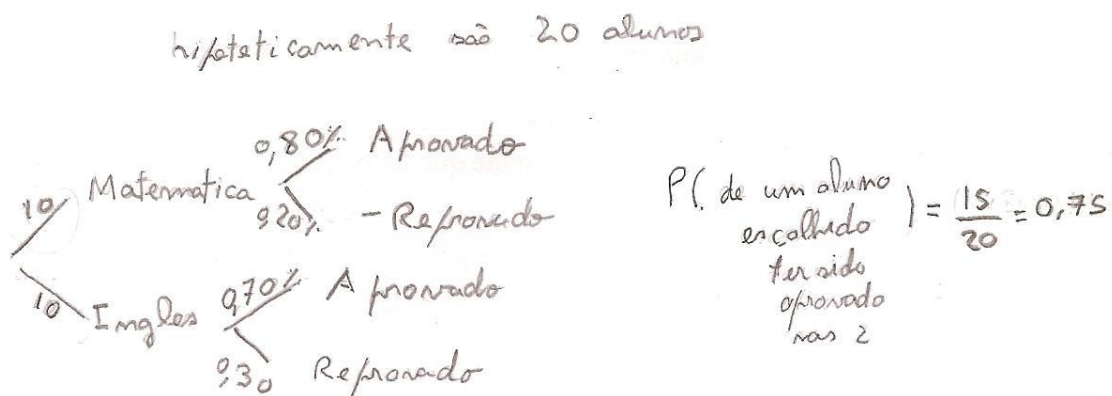 hipoteticamente são 20 alunos
10 Matematica 0,80% Aprovado
0,20% - Reprovado
10 Ingles 0,70% Aprovado
0,30 Reprovado
P( de um aluno
escolhido
ter sido
aprovado
nas 2
) = 15/20 = 0,75